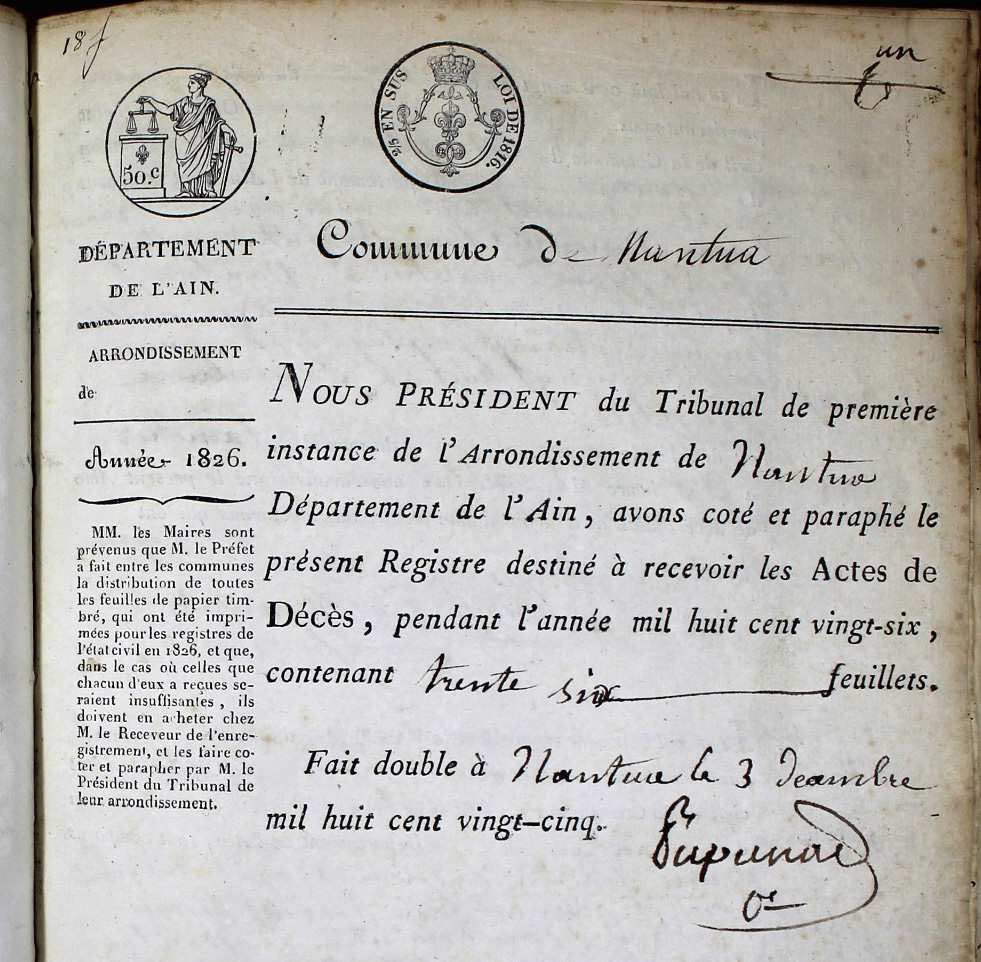 un
50.c
2/5 EN SUS LOI DE 1816.
DÉPARTEMENT
DE L'AIN.
ARRONDISSEMENT
de
Année 1826.
MM. les Maires sont
prévenus que M. le Préfet
a fait entre les communes
la distribution de toutes
les feuilles de papier tim-
bré, qui ont été impri-
mées pour les registres de
l'état civil en 1826, et que,
dans le cas où celles que
chacun d'eux a reçues se-
raient insuffisantes, ils
doivent en acheter chez
M. le Receveur de l'enre-
gistrement, et les faire co-
ter et parapher par M. le
Président du Tribunal de
leur arrondissement.
Commune de Nantua
NOUS PRÉSIDENT du Tribunal de première
instance de l'Arrondissement de Nantua
Département de l'Ain, avons coté et paraphé le
présent Registre destiné à recevoir les Actes de
Décès, pendant l'année mil huit cent vingt-six,
contenant trente six feuillets.
Fait double à Nantua le 3 Decembre
mil huit cent vingt-cinq.